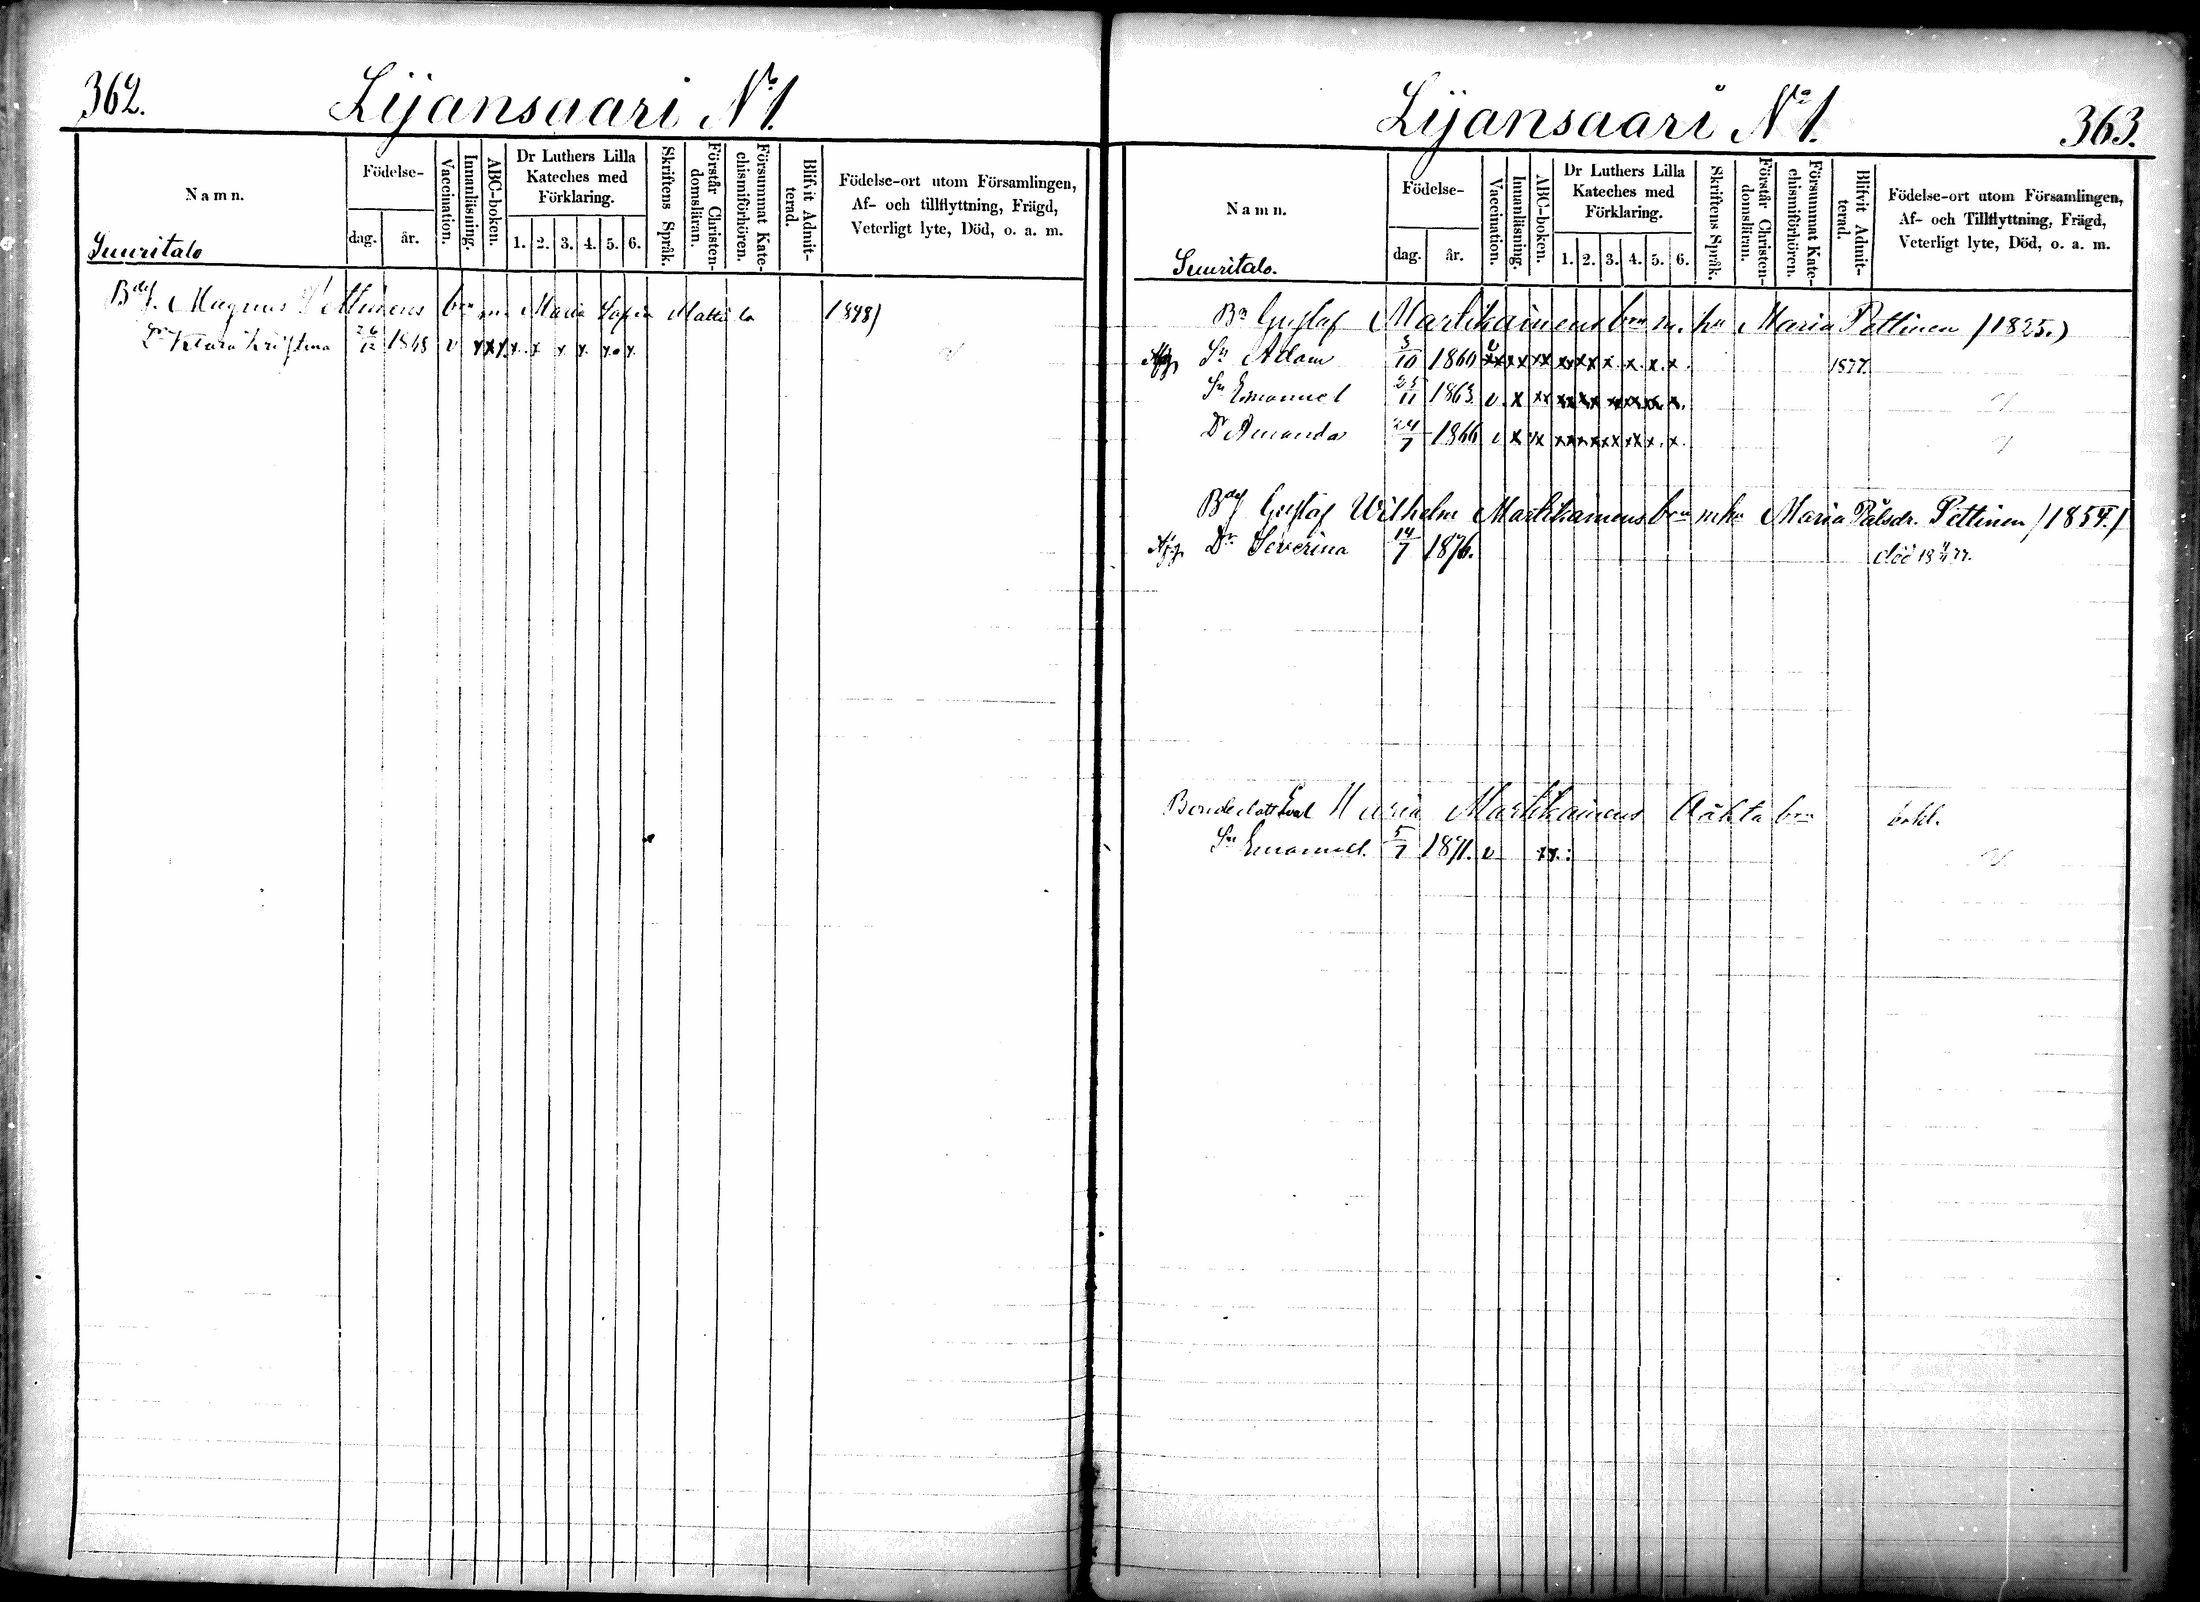 362.
Lijansaari No 1.
Namn.
Födelse-
dag.
år.
Vaccination.
Innanläsning.
ABC-boken.
Dr Luthers Lilla
Kateches med
Förklaring.
1. 2. 3. 4. 5. 6.
Skriftens Språk.
Förstår Christen-
domsläran.
Försummat Kate-
chismiförhören.
Blifvit Admit-
terad.
Födelse-ort utom Församlingen,
Af- och tillflyttning, Frägd,
Veterligt lyte, Död, o. a. m.
Suuritalo
Bdsf. Magnus Pettinens bn m. Maria Sofia Mattila 1848)
Dr Klara Kristina 26/12 1868 v x x x x. x x x. x. x.
Lijansaari No 1.
363.
Namn.
Födelse-
dag.
år.
Vaccination.
Innanläsning.
ABC-boken.
Dr Luthers Lilla
Kateches med
Förklaring.
1. 2. 3. 4. 5. 6.
Skriftens Språk.
Förstår Christen-
domsläran.
Försummat Kate-
chismiförhören.
Blifvit Admit-
terad.
Födelse-ort utom Församlingen,
Af- och Tillflyttning, Frägd,
Veterligt lyte, Död, o. a. m.
Suuritalo.
Bn Gustaf Martikainens bn m. hu Maria Pettinen (1825.)
Sn Adam 3/10 1860 v xx xx xx xx xx x. x. x. x. 1877.
Sn Emanuel 25/11 1863. v. x xx xx xx xx xx x. x.
Dr Amanda 24/7 1866 v x xx xx xx xx xx x. x.
Bdsf Gustaf Wilhelm Martikainens bn m hu Maria Pålsdr. Pettinen (1854.)
Dr Severina 14/7 1876. död 18 77.
Bondedottren Maria Martikainens oäkta bn
Sn Emanuel. 5/7 1871. v xx.